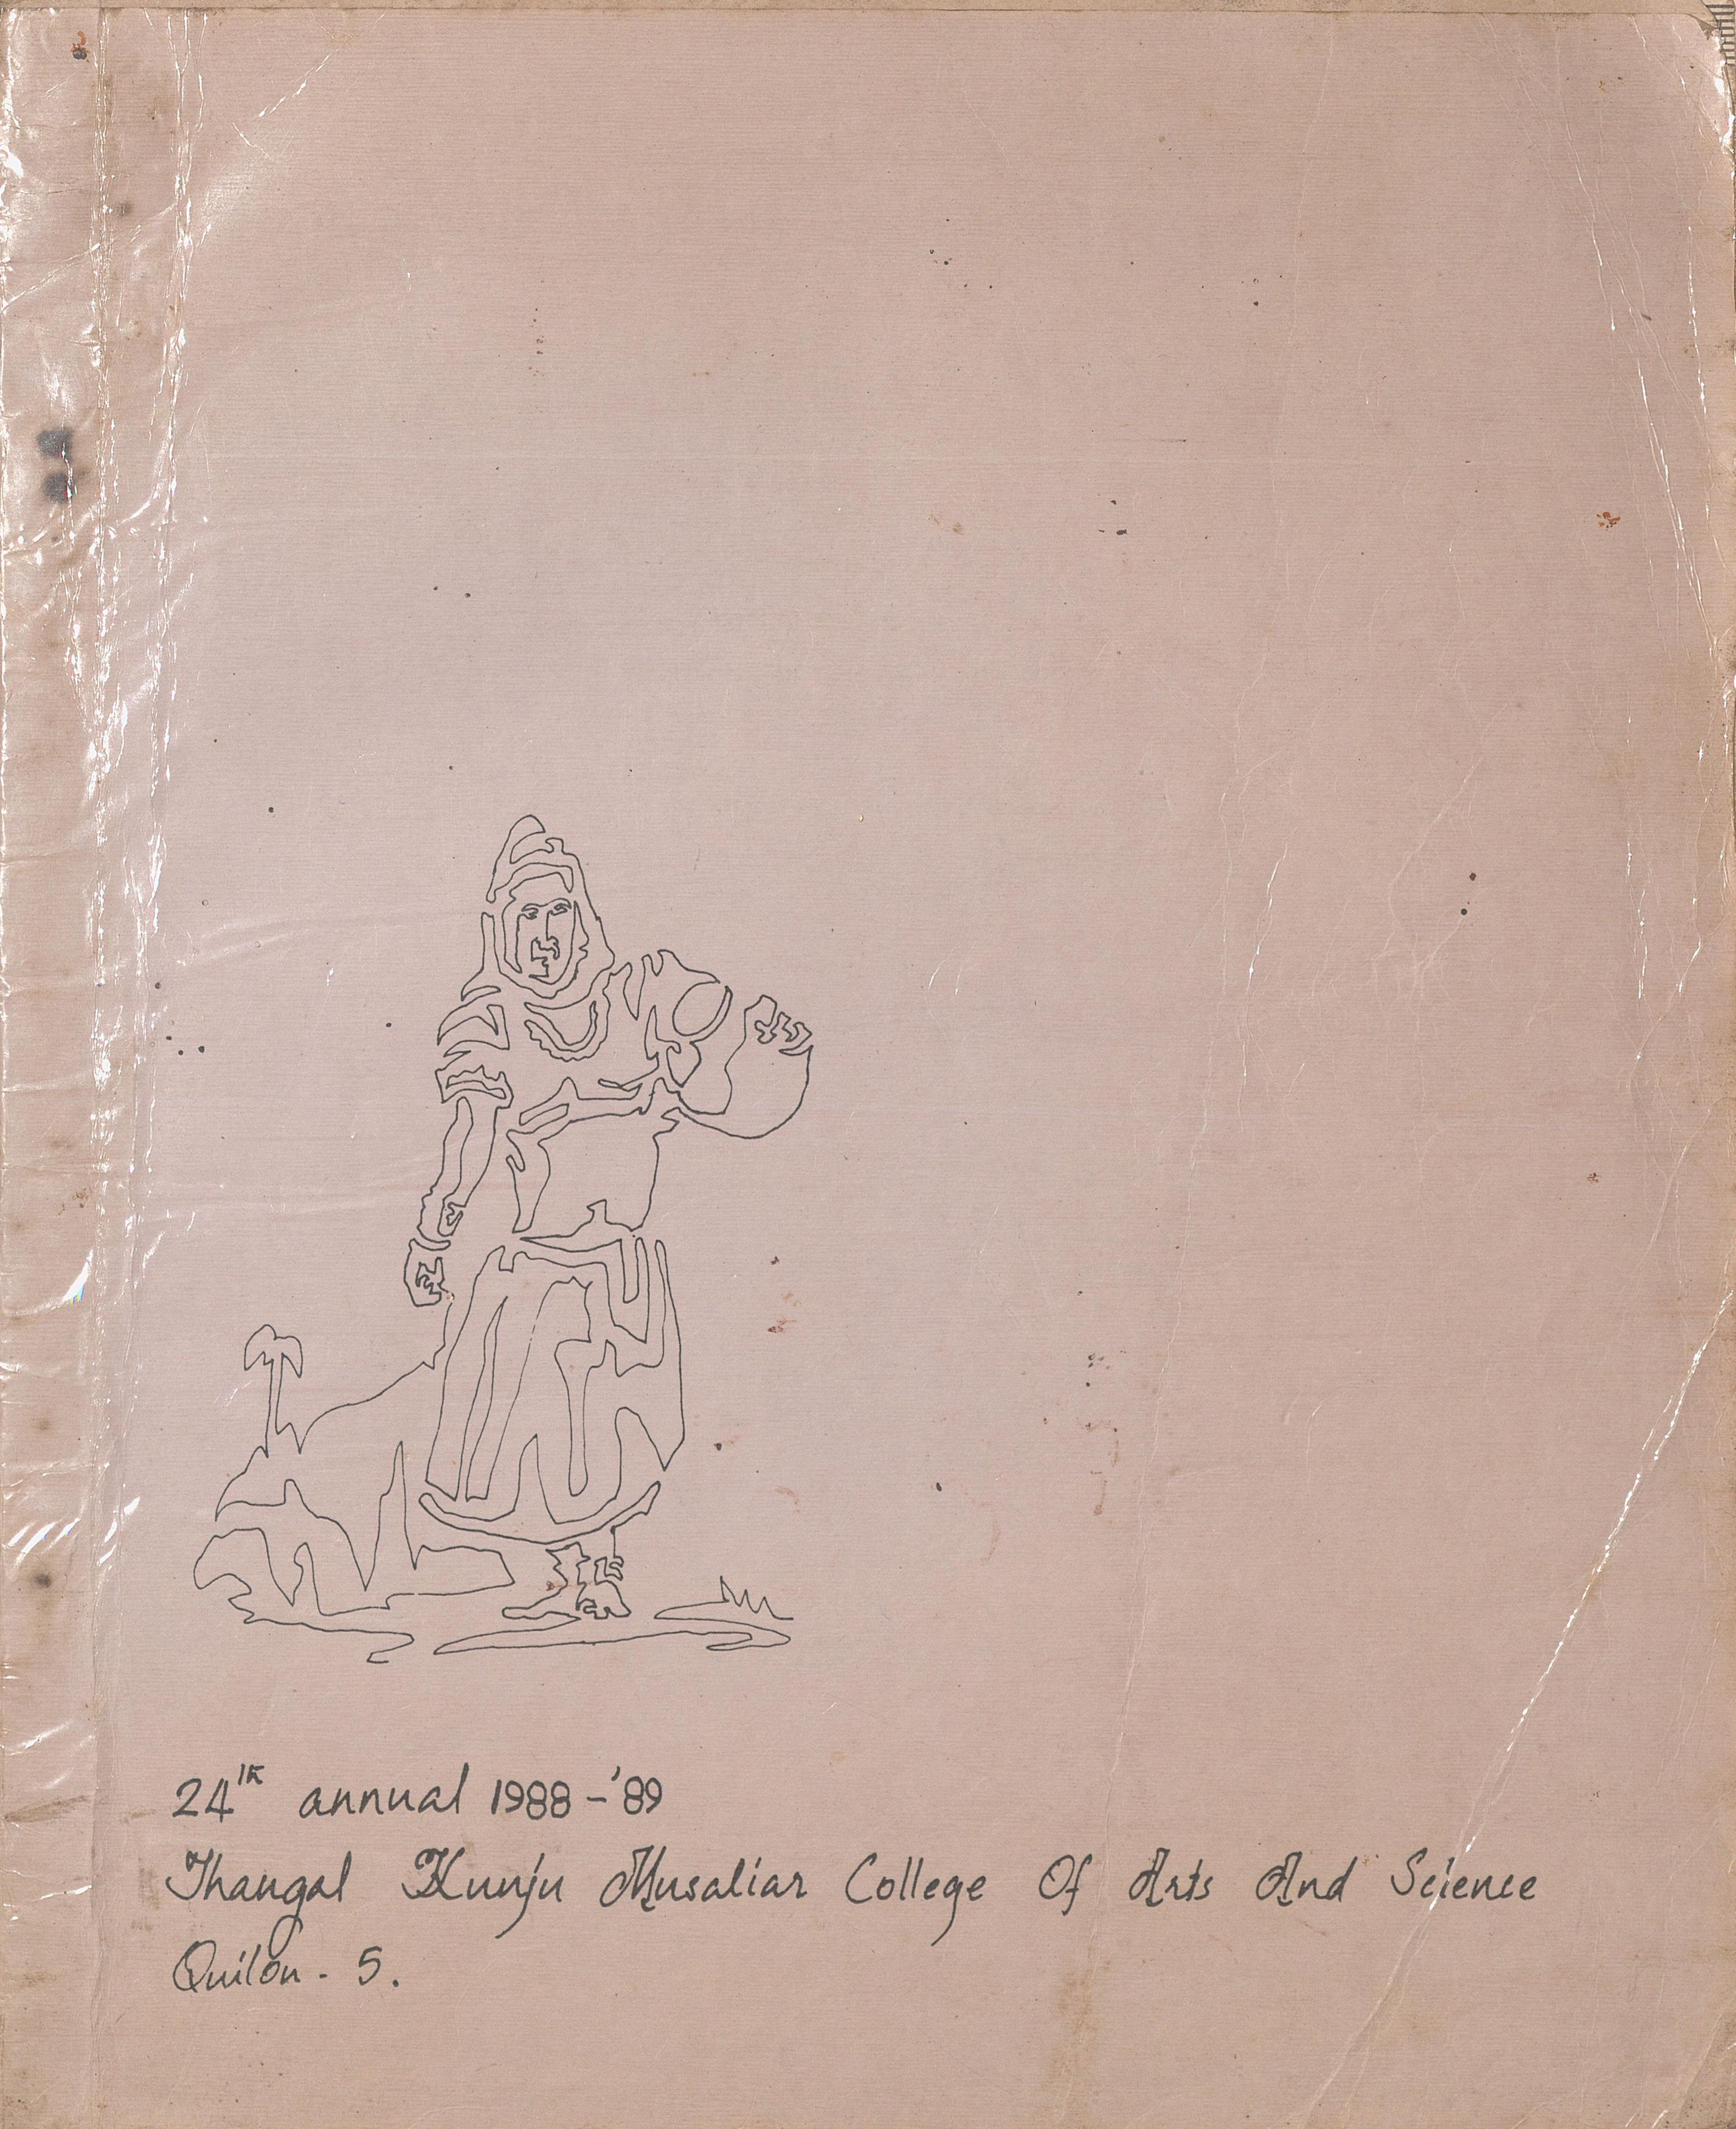 24th annual 1988-'89
Thangal Kunju Musaliar College Of Arts And Science
Quilon - 5.